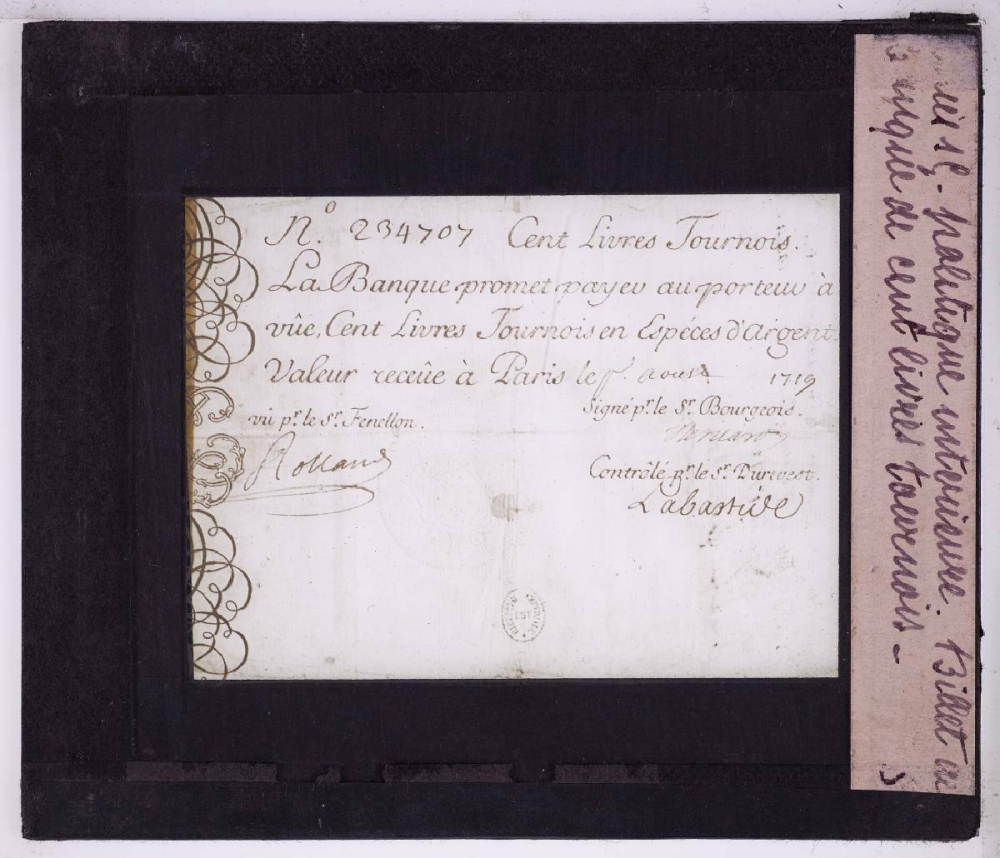 No. 234707 Cent Livres Tournois.
La Banque promet payer au porteur à
vûe, Cent Livres Tournois en Espéces d'Argent
Valeur receüe à Paris le Aoust 1719
vû pr. le Sr. Fenellon.
Signé pr. le Sr. Bourgeois.
Rolland
Contrôlé pr. le Sr. Durvest.
Labastide
politique interieure. Billet de
Banque de cent livres tournois -